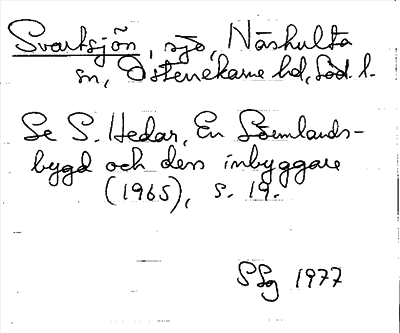 Svartsjön, sjö, Näshulta
sn, Österrekarne hd, Söd. l.
Se S. Hedar, En Sörmlands-
bygd och dess inbyggare
(1965), s. 19.
SSg 1977